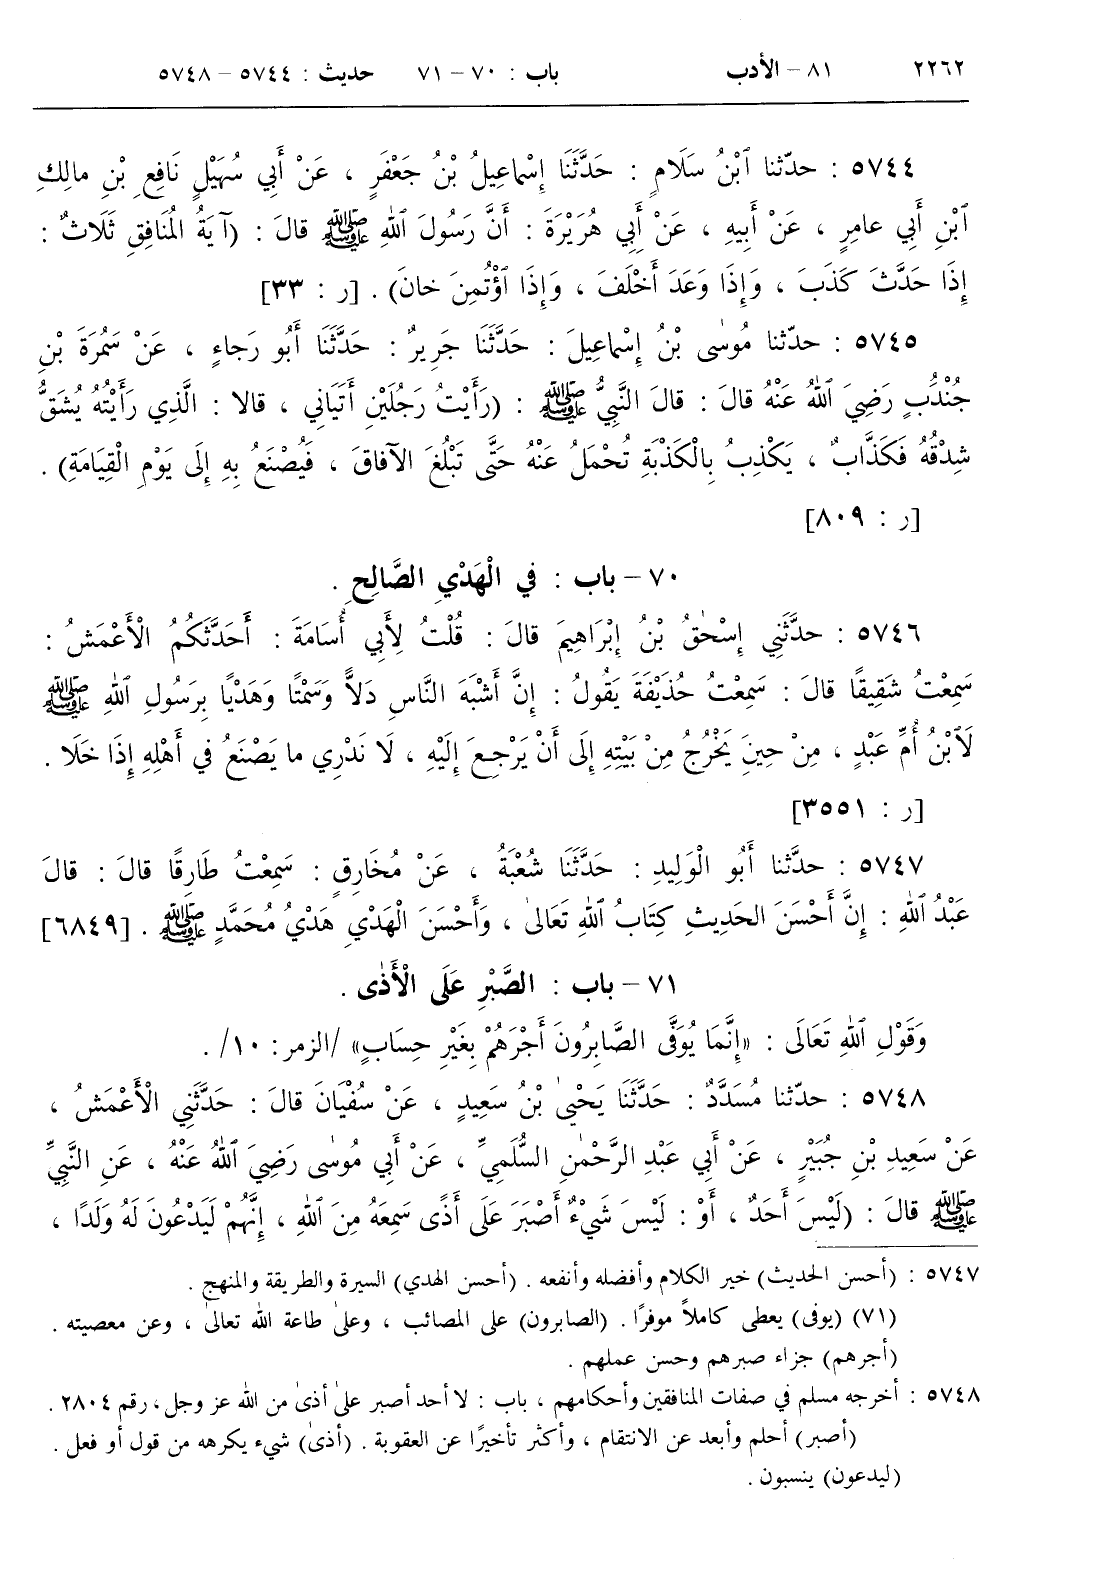 ٢٢٦٢ ٨١ – الأدب باب : ٧٠ – ٧١ حديث : ٥٧٤٤ – ٥٧٤٨
٥٧٤٤ : حدّثنا ٱبْنُ سَلَامٍ : حَدَّثَنَا إِسْمَاعِيلُ بْنُ جَعْفَرٍ ، عَنْ أَبِي سُهَيْلٍ نَافِعِ بْنِ مالِكِ
ٱبْنِ أَبِي عامِرٍ ، عَنْ أَبِيهِ ، عَنْ أَبِي هُرَيْرَةَ : أَنَّ رَسُولَ ٱللهِ ﷺ قالَ : (آيَةُ الْمُنَافِقِ ثَلَاثٌ :
إِذَا حَدَّثَ كَذَبَ ، وَإِذَا وَعَدَ أَخْلَفَ ، وَإِذَا ٱؤْتُمِنَ خانَ) . [ر : ٣٣]
٥٧٤٥ : حدّثنا مُوسٰى بْنُ إِسْمَاعِيلَ : حَدَّثَنَا جَرِيرٌ : حَدَّثَنَا أَبُو رَجاءٍ ، عَنْ سَمُرَةَ بْنِ
جُنْدُبٍ رَضِيَ ٱللهُ عَنْهُ قالَ : قالَ النَّبِيُّ ﷺ : (رَأَيْتُ رَجُلَيْنِ أَتَيَانِي ، قالا : الَّذِي رَأَيْتَهُ يُشَقُّ
شِدْقُهُ فَكَذَّابٌ ، يَكْذِبُ بِالْكَذْبَةِ تُحْمَلُ عَنْهُ حَتَّى تَبْلُغَ الآفاقَ ، فَيُصْنَعُ بِهِ إِلَى يَوْمِ الْقِيَامَةِ) .
[ر : ٨٠٩]
٧٠ – باب : في الْهَدْيِ الصَّالِحِ .
٥٧٤٦ : حدَّثَنِي إِسْحٰقُ بْنُ إِبْرَاهِيمَ قالَ : قُلْتُ لِأَبِي أُسَامَةَ : أَحَدَّثَكُمُ الْأَعْمَشُ :
سَمِعْتُ شَقِيقًا قالَ : سَمِعْتُ حُذَيْفَةَ يَقُولُ : إِنَّ أَشْبَهَ النَّاسِ دَلًّا وَسَمْتًا وَهَدْيًا بِرَسُولِ ٱللهِ ﷺ
لَٱبْنُ أُمِّ عَبْدٍ ، مِنْ حِينَ يَخْرُجُ مِنْ بَيْتِهِ إِلَى أَنْ يَرْجِعَ إِلَيْهِ ، لَا نَدْرِي ما يَصْنَعُ في أَهْلِهِ إِذَا خَلَا .
[ر : ٣٥٥١]
٥٧٤٧ : حدَّثنا أَبُو الْوَلِيدِ : حَدَّثَنَا شُعْبَةُ ، عَنْ مُخَارِقٍ : سَمِعْتُ طَارِقًا قالَ : قالَ
عَبْدُ ٱللهِ : إِنَّ أَحْسَنَ الحَدِيثِ كِتَابُ ٱللهِ تَعَالَىٰ ، وَأَحْسَنَ الْهَدْيِ هَدْيُ مُحَمَّدٍ ﷺ . [٦٨٤٩]
٧١ – باب : الصَّبْرِ عَلَى الْأَذٰى .
وَقَوْلِ ٱللهِ تَعَالَى : «إِنَّمَا يُوَفَّى الصَّابِرُونَ أَجْرَهُمْ بِغَيْرِ حِسَابٍ» /الزمر: ١٠/ .
٥٧٤٨ : حدّثنا مُسَدَّدٌ : حَدَّثَنَا يَحْيٰى بْنُ سَعِيدٍ ، عَنْ سُفْيَانَ قالَ : حَدَّثَنِي الْأَعْمَشُ ،
عَنْ سَعِيدِ بْنِ جُبَيْرٍ ، عَنْ أَبِي عَبْدِ الرَّحْمٰنِ السُّلَمِيِّ ، عَنْ أَبِي مُوسٰى رَضِيَ ٱللهُ عَنْهُ ، عَنِ النَّبِيِّ
ﷺ قالَ : (لَيْسَ أَحَدٌ ، أَوْ : لَيْسَ شَيْءٌ أَصْبَرَ عَلَى أَذًى سَمِعَهُ مِنَ ٱللهِ ، إِنَّهُمْ لَيَدْعُونَ لَهُ وَلَدًا ،
٥٧٤٧ : (أحسن الحديث) خير الكلام وأفضله وأنفعه . (أحسن الهدي) السيرة والطريقة والمنهج .
(٧١) (يوفى) يعطى كاملاً موفرًا . (الصابرون) على المصائب ، وعلىٰ طاعة الله تعالىٰ ، وعن معصيته .
(أجرهم) جزاء صبرهم وحسن عملهم .
٥٧٤٨ : أخرجه مسلم في صفات المنافقين وأحكامهم ، باب : لا أحد أصبر علىٰ أذىٰ من الله عز وجل ، رقم ٢٨٠٤ .
(أصبر) أحلم وأبعد عن الانتقام ، وأكثر تأخيرًا عن العقوبة . (أذىٰ) شيء يكرهه من قول أو فعل .
(ليدعون) ينسبون .